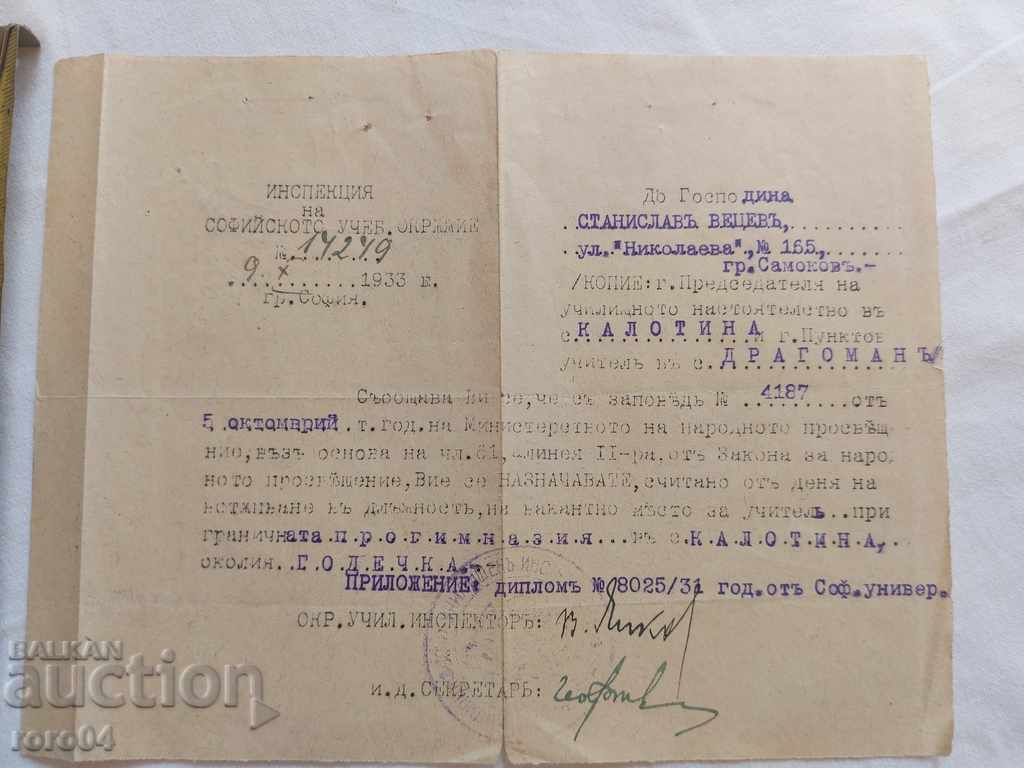 ИНСПЕКЦИЯ
на
СОФИЙСКОТО УЧЕБ. ОКРѪЖИЕ
№ 17249
9. X 1933 г.
гр. София.
До Господина
СТАНИСЛАВЪ ВЕЦЕВЪ,
ул. "Николаева", № 165,
гр. Самоковъ.-
/КОПИЕ: г. Председателя на
училищното настоятелство въ
с. КАЛОТИНА и г. Пунктов
учитель въ с. ДРАГОМАНЪ/
Съобщава Ви се, че съ заповѣдь № 4187 отъ
5 октомврий т. год. на Министерството на народното просвѣще
ние, възъ основа на чл. 61, алинея II-ра, отъ Закона за народ
ното просвѣщение, Вие се НАЗНАЧАВАТЕ, считано отъ деня на
встѫпване въ длъжность, на вакантно мѣсто за учитель при
граничната прогимназия въ с. КАЛОТИНА,
околия ГОДЕЧКА.-
ПРИЛОЖЕНИЕ: дипломъ № 8025/31 год. отъ Соф. универ.
ОКР. УЧИЛ. ИНСПЕКТОРЪ:
и. д. СЕКРЕТАРЬ:
BALKAN
auction
roro04